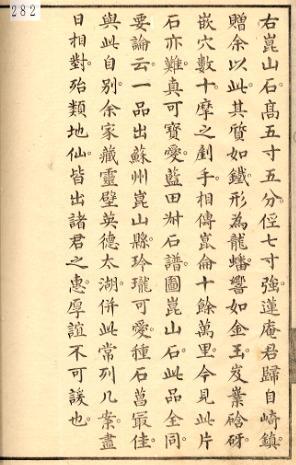 282
右崑山石。高五寸五分。俓七寸強。蓮庵君歸自崎鎮。
贈余以此。其質如鐵。形為龍蟠。響如金玉。岌嶪硿砑。
嵌穴數十。摩之劃手。相傳崑侖十餘萬里。今見此片
石亦難。真可寶愛。藍田叔石譜圖崑山石。此品全同。
要論云。一品出蘇州崑山縣。玲瓏可愛。種石菖㝡佳。
與此自別。余家藏靈壁英德太湖。併此常列几案。盡
日相對。殆類地仙。皆出諸君之惠。厚誼不可諼也。